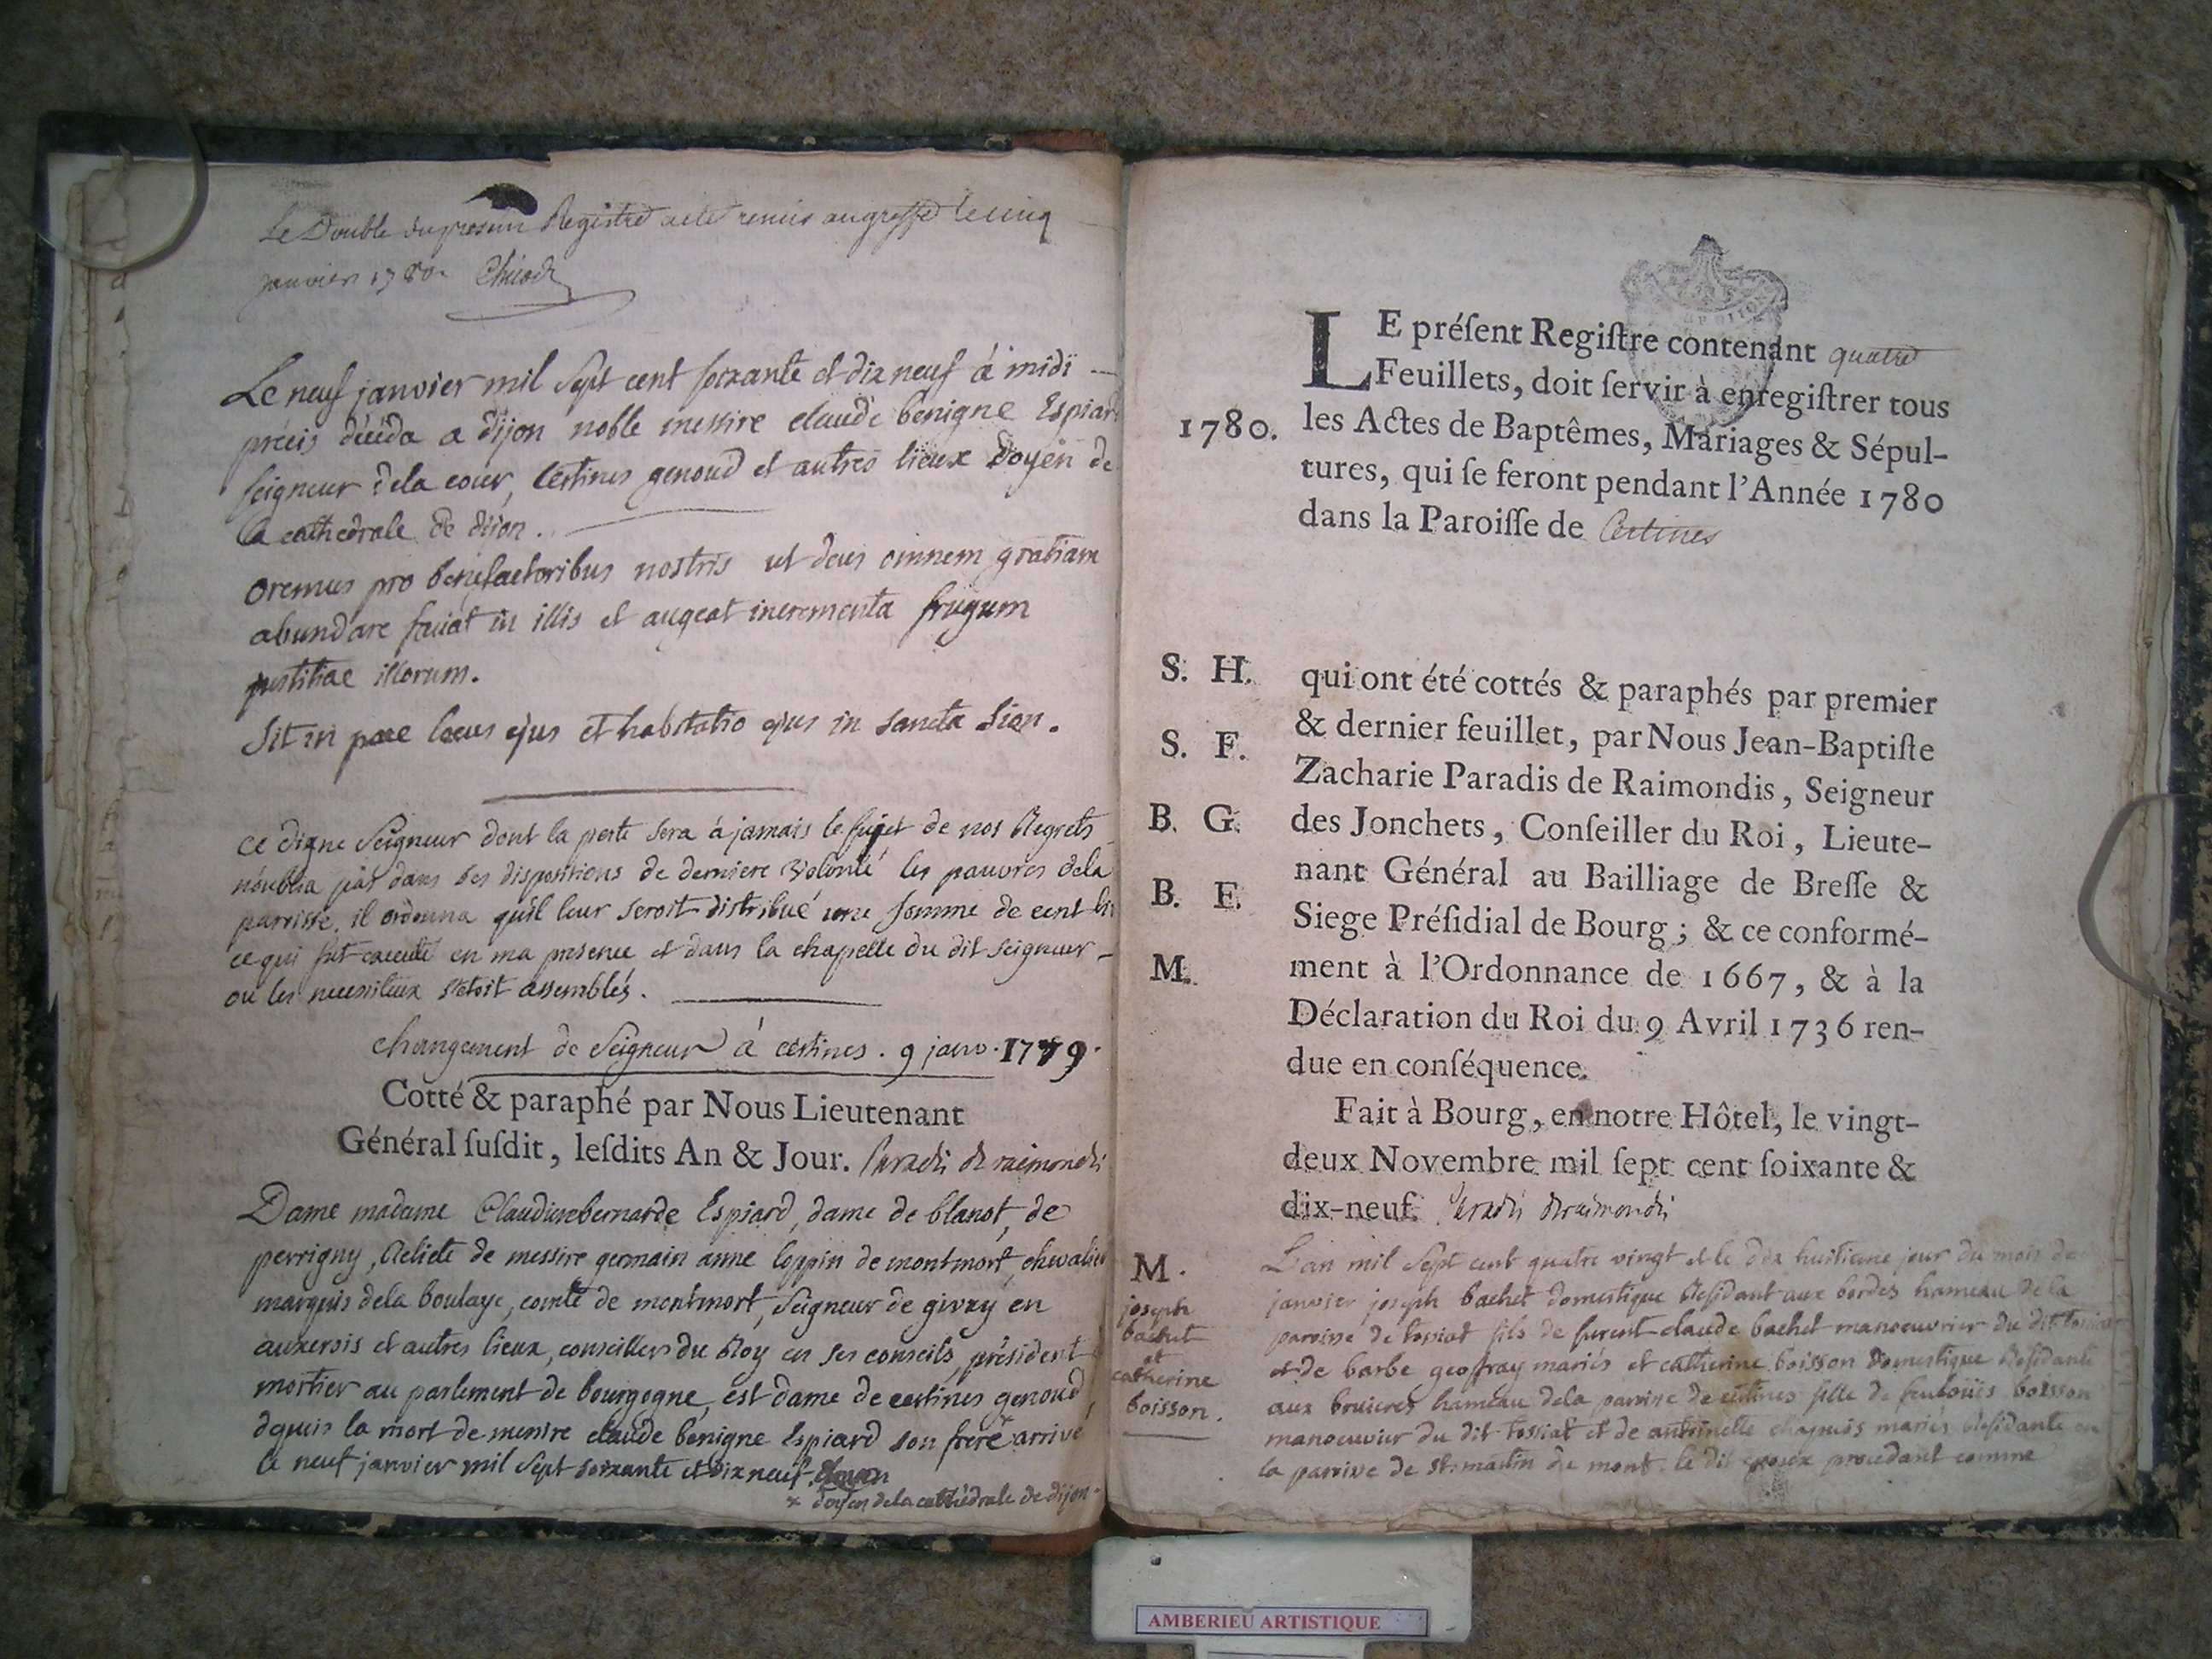 Le Double du present Registre a eté remis au greffe le cinq
janvier 1780.
Le neuf janvier mil sept cent soixante et dix neuf á midi
précis décéda a dijon noble messire claude benigne Espiard
seigneur dela cour, Certines genoud et autres lieux Doyen de
la cathedrale de dijon.
oremus pro benefactoribus nostris ut deus omnem gratiam
abundare faciat in illis et augeat incrementa frugum
justitiae illorum.
Sit in pace locus ejus et habitatio ejus in sancta sion.
ce digne Seigneur dont la perte sera á jamais le sujet de nos Regrets
n'oublia pas dans ses dispositions de derniere volonté les pauvres dela
paroisse. il ordonna qu'il leur seroit distribué une somme de cent
ce qui fut executé en ma presence et dans la chapelle du dit seigneur
ou les necessiteux s'etoit assemblés.
changement de Seigneur á certines. 9 janv. 1779.
Cotté & paraphé par Nous Lieutenant
Général suſdit, leſdits An & Jour. Paradis de raimondis
Dame madame Claudine bernarde Espiard, dame de blanot, de
perrigny, Relicte de messire germain anne loppin de montmort, chevalier
marquis dela boulaye, comte de montmort, Seigneur de givry en
auxerois et autres lieux, conseiller du Roy en ses conseils, président
mortier au parlement de bourgogne, est dame de certines genoud
depuis la mort de messire claude benigne Espiard son frere x arrivé
le neuf janvier mil sept soixante et dix neuf.
x doyen dela cathédrale de dijon
LE préſent Regiſtre contenant quatre
Feuillets, doit ſervir à enregiſtrer tous
1780. les Actes de Baptêmes, Mariages & Sépul-
tures, qui ſe feront pendant l'Année 1780
dans la Paroiſſe de Certines
S. H. qui ont été cottés & paraphés par premier
& dernier feuillet, par Nous Jean-Baptiſte
S. F. Zacharie Paradis de Raimondis, Seigneur
B. G. des Jonchets, Conſeiller du Roi, Lieute-
nant Général au Bailliage de Breſſe &
B. F. Siege Préſidial de Bourg; & ce conformé-
M. ment à l'Ordonnance de 1667, & à la
Déclaration du Roi du 9 Avril 1736 ren-
due en conſéquence.
Fait à Bourg, en notre Hôtel, le vingt-
deux Novembre mil ſept cent ſoixante &
dix-neuf. Paradis de raimondis
M.
joseph
bachet
et
catherine
boisson.
L'an mil sept cent quatre vingt et le dix huitieme jour du mois de
janvier joseph bachet domestique Residant aux bordes hameau de la
paroisse de tossiat fils de furent claude bachet manoeuvrier du dit tossiat
et de barbe geoffray mariés et catherine boisson domestique Residante
aux bruieres hameau dela paroisse de certines fille de feu loüis boisson
manoeuvrier du dit tossiat et de antoinette chapuis mariés Residante en
la paroisse de st. martin du mont. le dit epoux procedant comme
AMBERIEU ARTISTIQUE